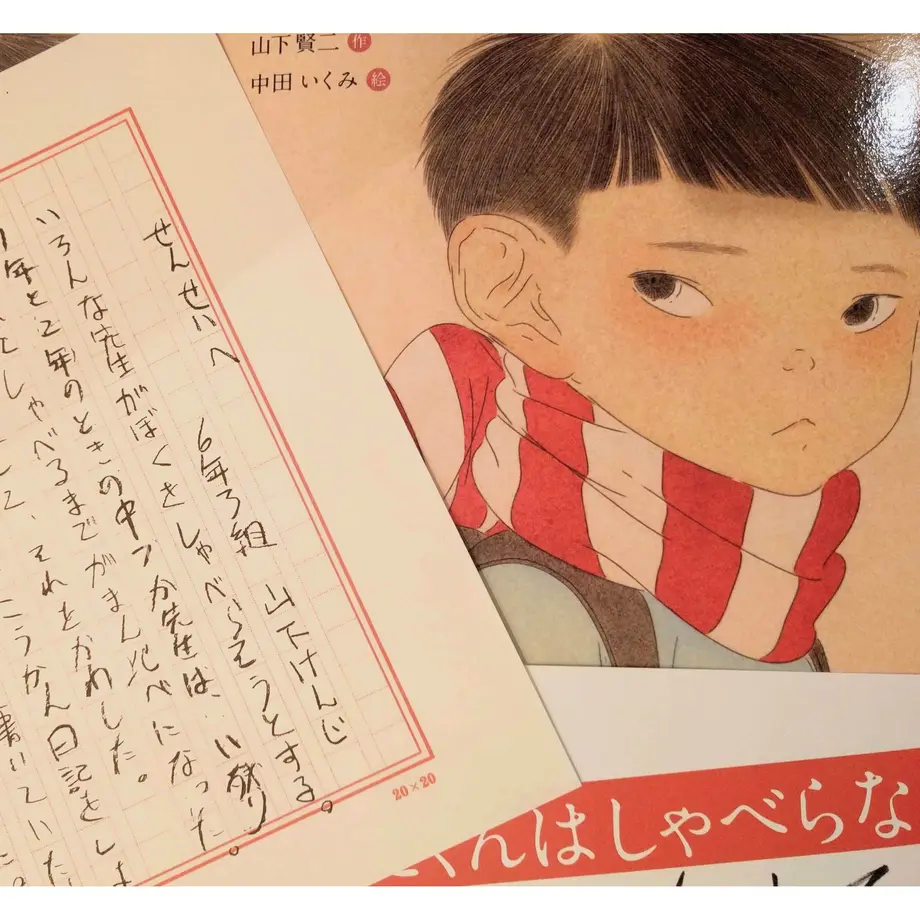 山下賢二 作
中田いくみ 絵
せんせいへ 6年ろ組 山下けんじ
いろんな先生がぼくをしゃべらそうとする。
年と2年のときの中 か先生は、い残り。
しゃべるまでがまん比べになった
て、それをかわした。
こうかん日記をしよ
書いていた
20×20
くんはしゃべらな